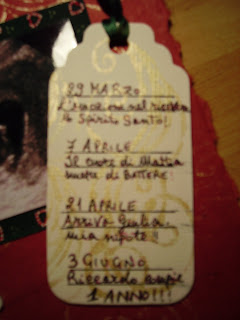 29 MARZO
lo Spirito Santo!
7 APRILE
Il cuore di Mattia
smette di BATTERE!
21 APRILE
Arriva Giulia
mia nipote!!
3 GIUGNO
Riccardo compie
1 ANNO!!!